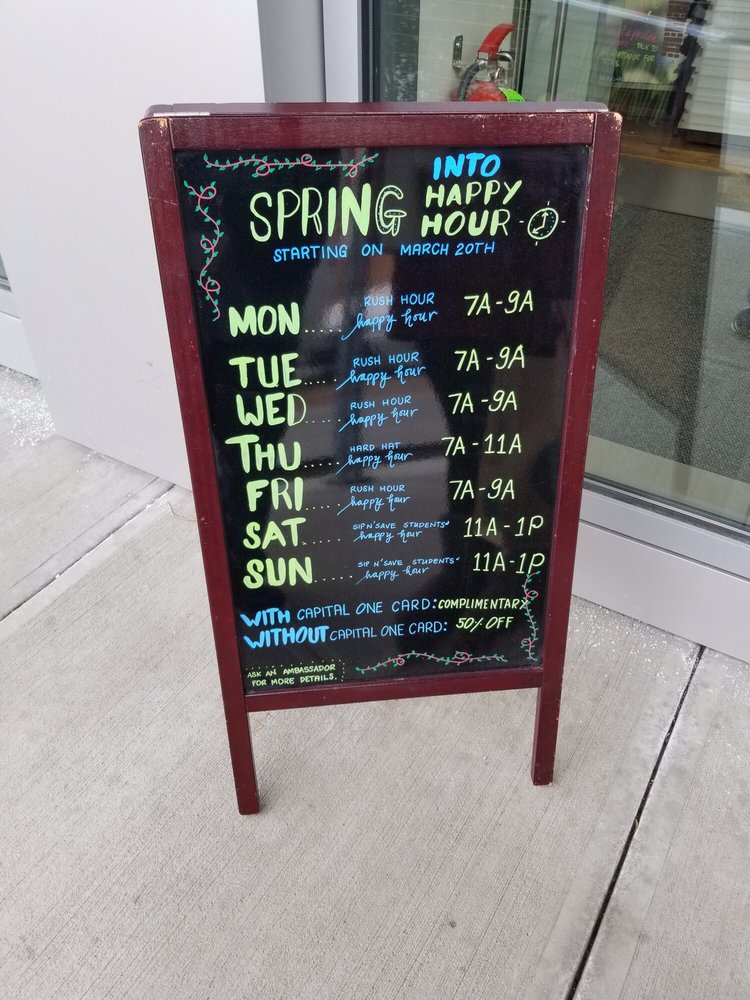 INTO
SPRING HAPPY
HOUR
STARTING ON MARCH 20TH
MON...... RUSH HOUR happy hour 7A-9A
TUE..... RUSH HOUR happy hour 7A-9A
WED..... RUSH HOUR happy hour 7A-9A
THU..... HARD HAT happy hour 7A-11A
FRI..... RUSH HOUR happy hour 7A-9A
SAT..... SIP N' SAVE STUDENTS* happy hour 11A-1P
SUN..... SIP N' SAVE STUDENTS* happy hour 11A-1P
WITH CAPITAL ONE CARD: COMPLIMENTARY
WITHOUT CAPITAL ONE CARD: 50% OFF
ASK AN AMBASSADOR
FOR MORE DETAILS.
TALK TO